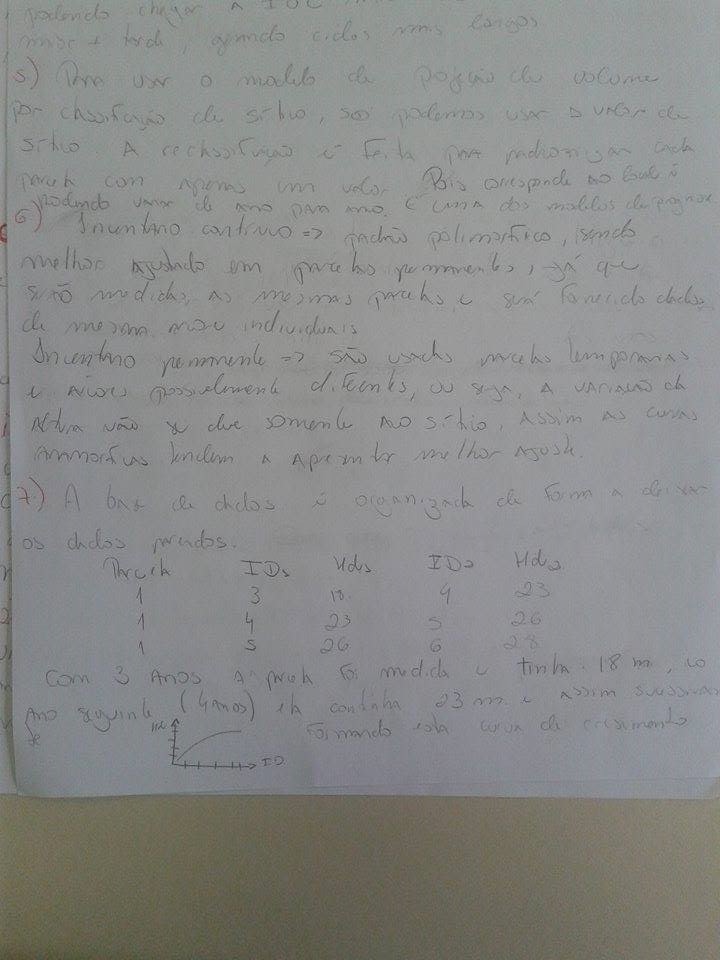 podendo chegar a
mais tarde, quando ciclos mais longos
5.) Para usar o modelo de pojeção de volume
por classificação de sítio, só podemos usar o valor de
sítio A reclassificação é feita para padronizar cada
parcela com apenas um valor. Pois corresponde ao local
podendo variar de ano para ano. É uma dos modelos de
6) Inventário contínuo => padrão polimorfico, sendo
melhor ajustado em parcelas permanentes, já que
são medidas, as mesmas parcelas e será fornecido dados
de mesma individuais
Inventário permanente => são usadas parcelas temporarias
e árvores possivelmente diferentes, ou seja, a variação da
Altura não se deve somente ao sítio, Assim as curvas
anamorficas tendem a apresentar melhor ajuste.
7.) A base de dados é organizada de forma a deixar
os dados pareados.
Parcela ID1 Hd1 ID2 Hd2
1 3 18 4 23
1 4 23 5 26
1 5 26 6 28
Com 3 Anos a parcela foi medida e tinha 18 m, no
Ano seguinte (4 anos) ela continha 23 m e assim
se formando esta curva de crescimento
Hd
ID